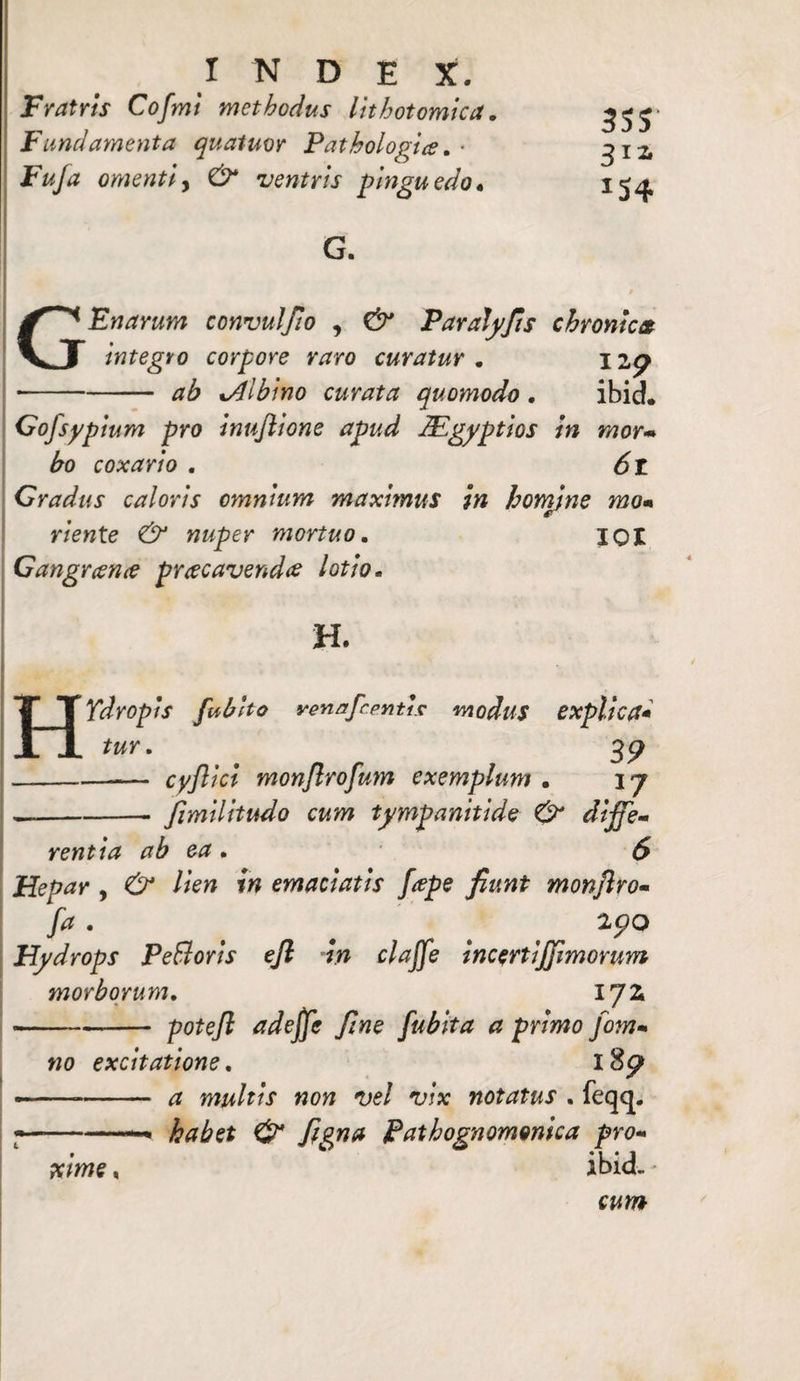 INDEX.
Fratris Cofmi methodus lithotomica. 355
Fundamenta quatuor Pathologiæ. 312
Fufa omenti, & ventris pinguedo. 154
G.
GEnarum convulfio, & Paralyfis chronicæ
integro corpore raro curatur. 129
——— ab Albino curata quomodo. ibid.
Gofsypium pro inuftione apud Ægyptios in mor-
bo coxario. 61
Gradus caloris omnium maximus in homine mo-
riente & nuper mortuo. 101
Gangrænæ præcavendæ lotio.
H.
HYdropis fubito renafcentis modus explica-
tur. 39
——— cyftici monftrofum exemplum. 17
——— fimilitudo cum tympanitide & diffe-
rentia ab ea. 6
Hepar, & lien in emaciatis fæpe fiunt monftro-
fa. 290
Hydrops Pectoris eft in claffe incertiffimorum
morborum. 172
——— poteft adeffe fine fubita a primo fom-
no excitatione. 189
——— a multis non vel vix notatus. feqq.
——— habet & figna Pathognomonica pro-
xime. ibid.
cum